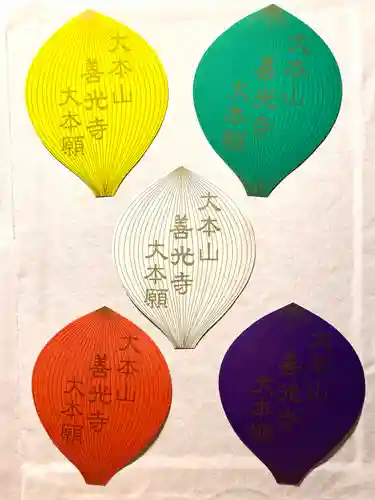 大本山
善光寺
大本願
大本山
善光寺
大本願
大本山
善光寺
大本願
大本山
善光寺
大本願
大本山
善光寺
大本願